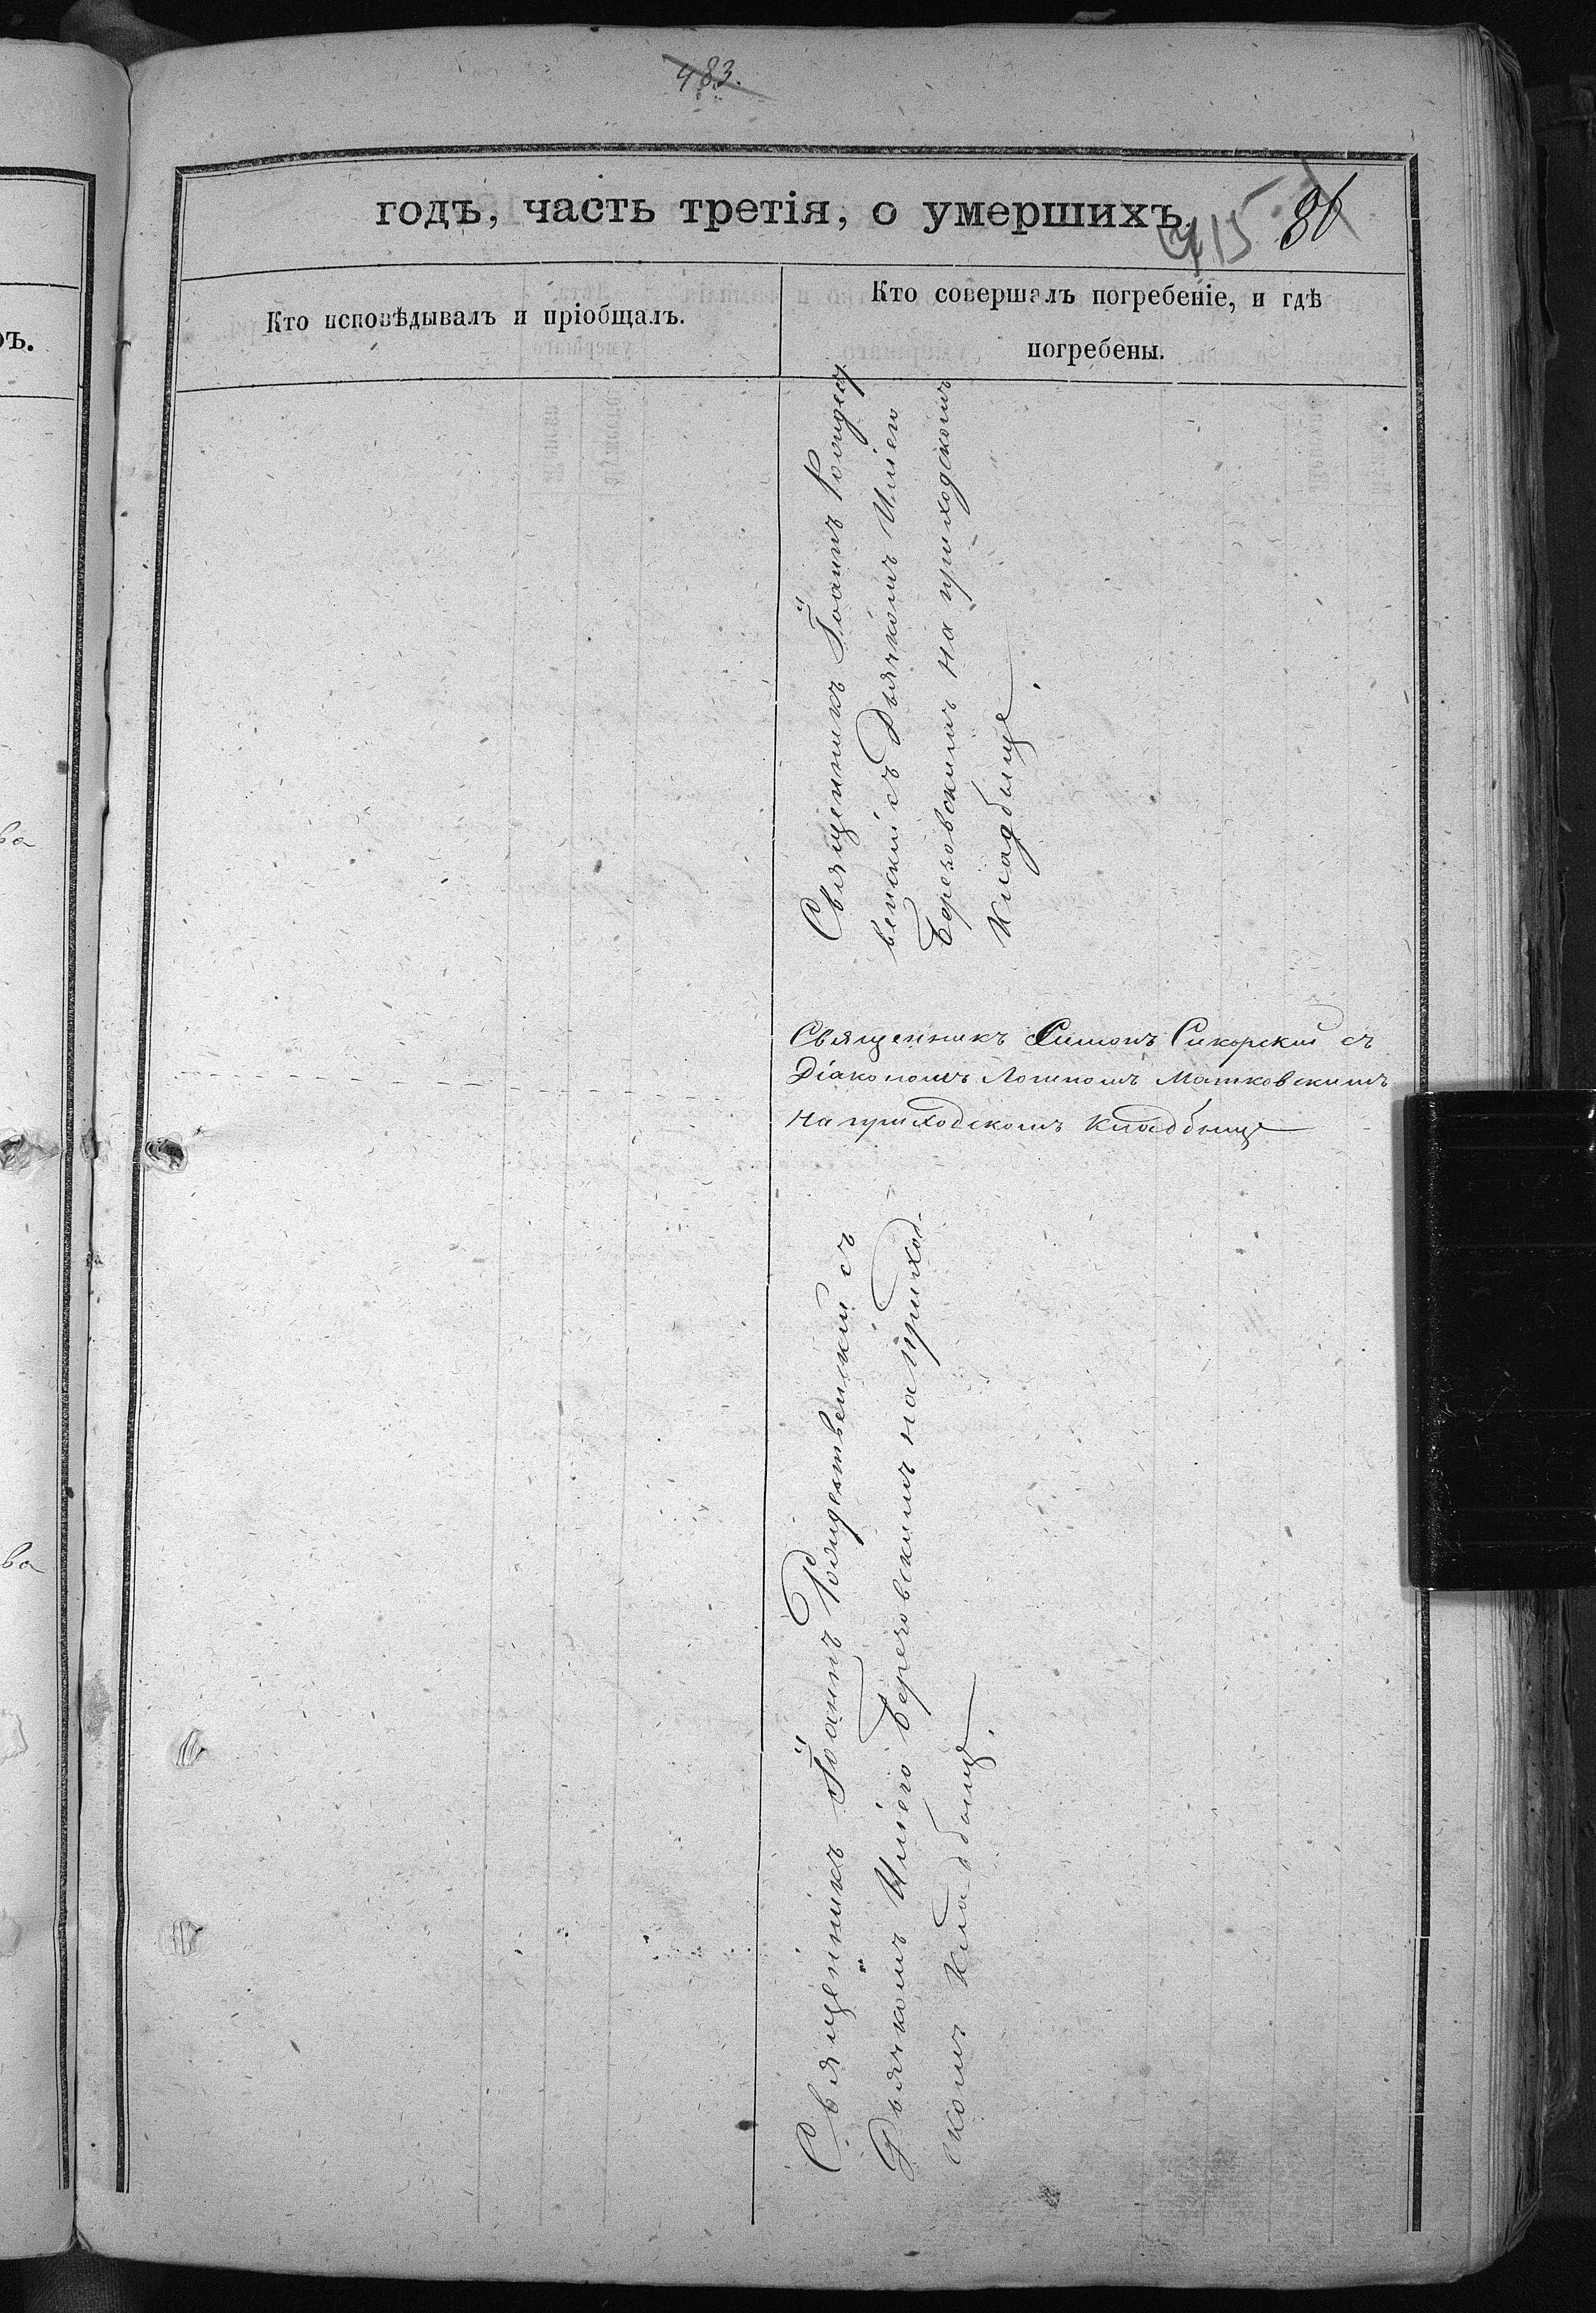 483.
годъ, часть третія, о умершихъ.
415
86
Кто исповѣдывалъ и пріобщалъ.
Кто совершалъ погребеніе, и гдѣ
погребены.
ръ.
ва
ва
Священникъ Іоаннъ Рождест
венскій съ Дьячкомъ Иліею
Березовскимъ на приходскомъ
Кладбище
Священникъ Симонъ Сикорскій съ
Діакономъ Логиномъ Матковскимъ
на приходскомъ Кладбище
Священникъ Іоаннъ Рождественскій съ
Дьячкомъ Иліею Березовскимъ на приход-
скомъ Кладбище.